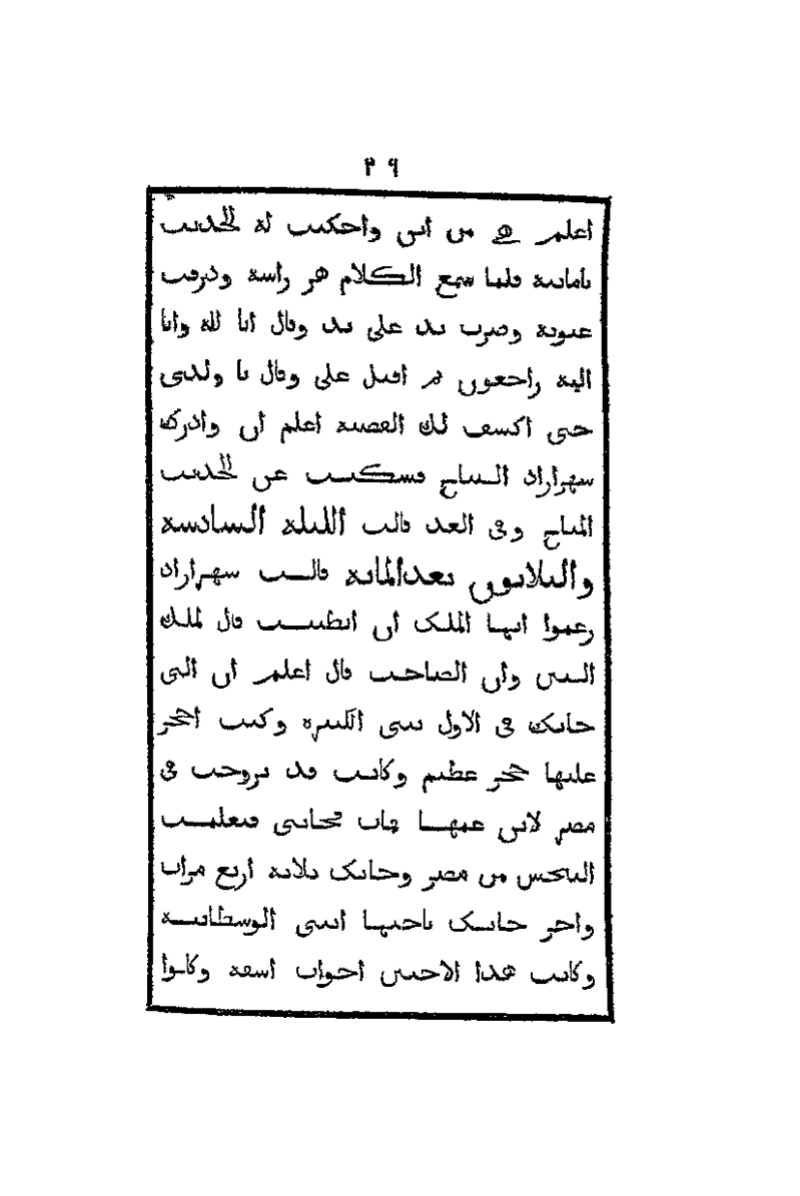 ٣٩
اعلم هي من اين واحكيت له الحديث
بامانة فلما سمع الكلام هز راسه ودرفت
عيونه وضرب يد على يد وقال انا لله وانا
اليه راجعون ثم اقبل على وقال يا ولدى
حتى اكشف لك القصة اعلم ان وادرك
شهرازاد الصباح فسكتت عن الحديث
المباح وفى الغد قالت الليلة السادسة
والثلاثون بعدالماية قالت شهرازاد
زعموا ايها الملك ان الطبيب قال لملك
الصين وان الصاحب قال اعلم ان التى
جاتك فى الاول بنتى الكبيره وكنت احجر
عليها حجر عظيم وكانت قد تزوجت فى
مصر لابن عمها مات فجاتنى فتعلمت
النحس من مصر وجاتك ثلاثة اربع مرات
واخر جاتك باختها ابنتى الوسطانية
وكانت هذا الاختين اخوات اشقه وكانوا